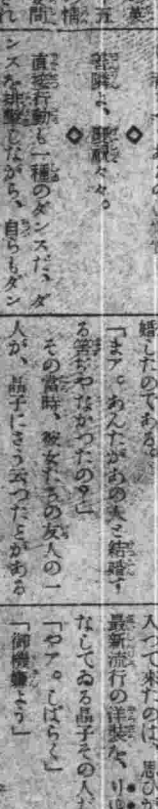 れ 問 情 五 英
◇
警醒よ、御覧々々。
◇
直接行動も一種のダンスだ、ダ
ンスを排撃しながら、自らもダン
婚したのである。
「まア。あんたがあの夫と結婚す
る筈ぢやなかつたの？」
その當時、彼女たちの友人の一
人が、晶子にさう云つたとがある
人つて來たのは、思ひ
最新流行の洋裝を、り
なしてゐる晶子その人だ
「やア。しばらく」
「御機嫌よう」